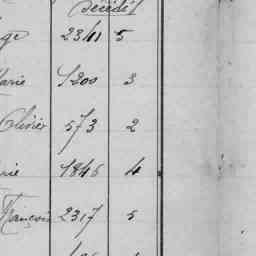 Décédé
ge 2341 5
Marie 1200 3
Olivier 573 2
rie 1846 4
François 2317 5